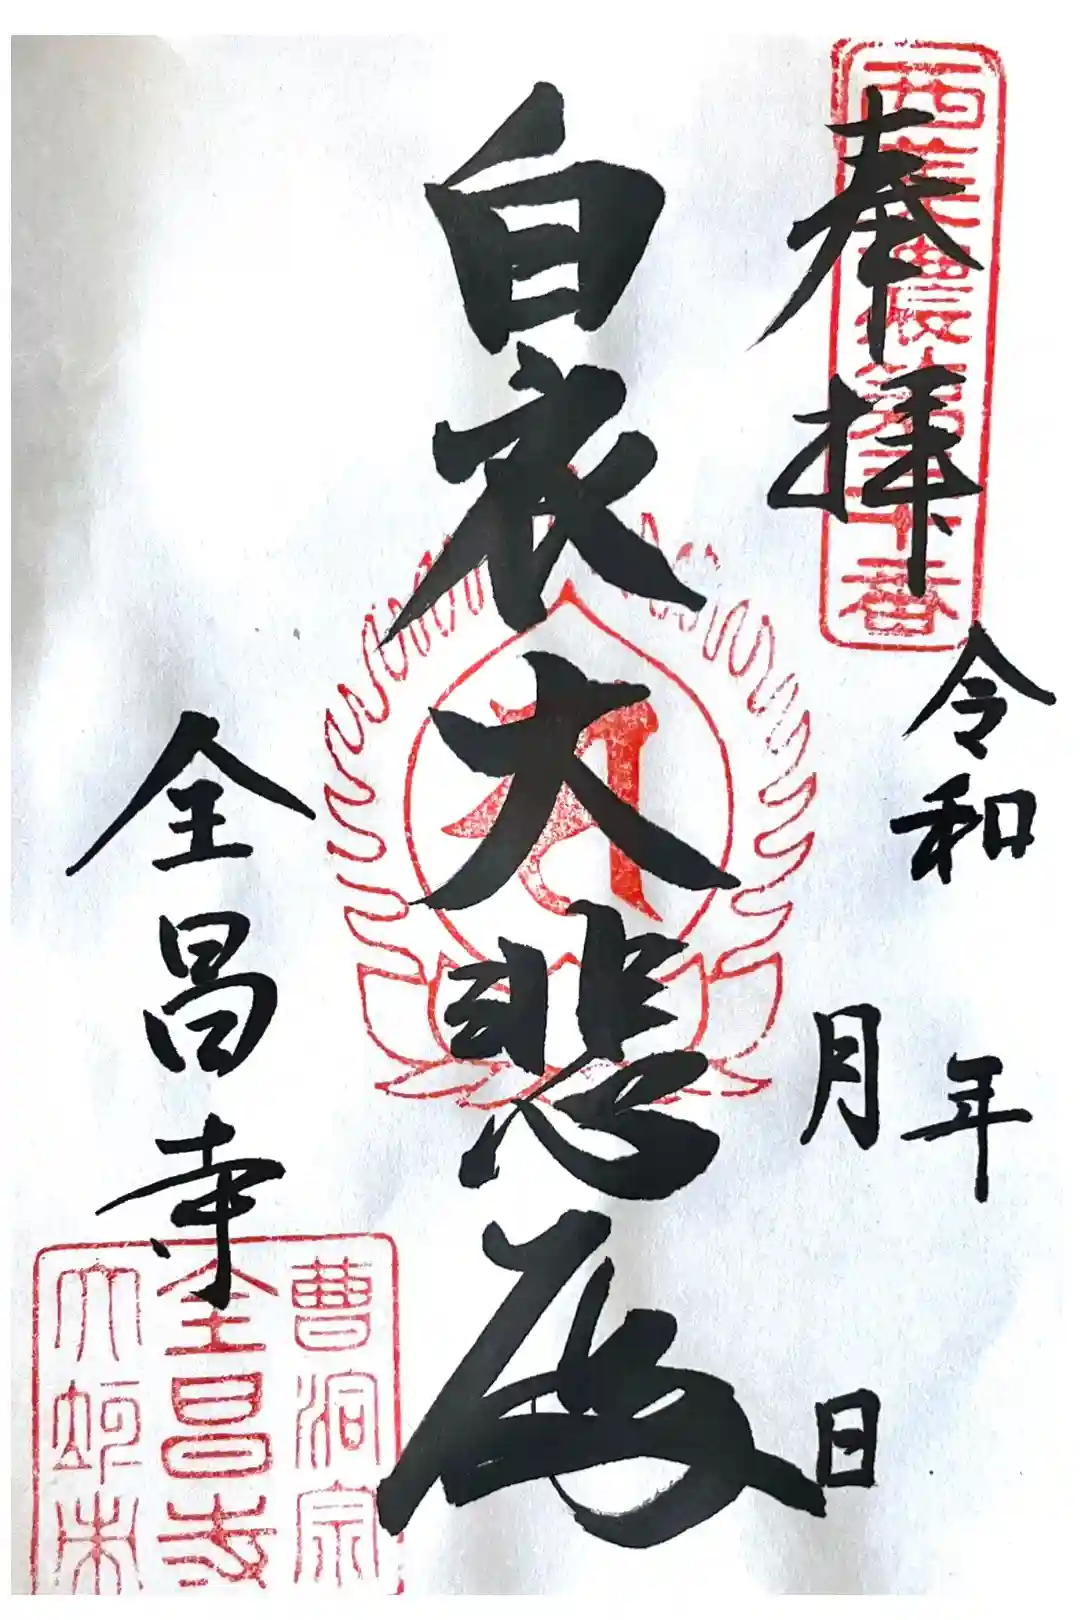 奉拝
西美濃第十番
令和 年
月 日
白衣大悲
全昌寺
曹洞宗
全昌寺
大垣市